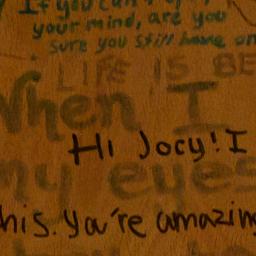 If you can't
your mind, are you
sure you still have on
LIFE IS BE
When I
Hi Jocy! I
my eyes
his. you're amazing